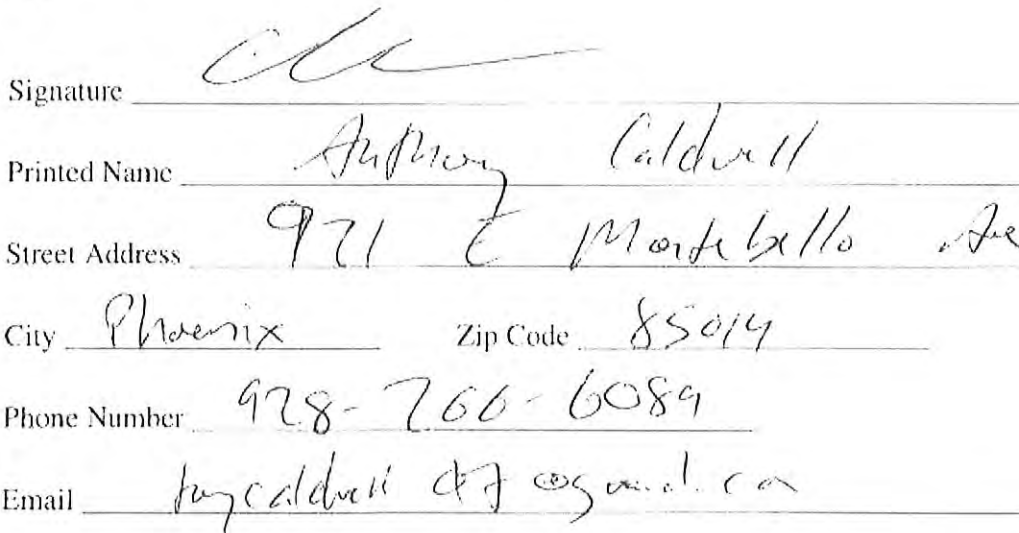 Signature
Printed Name Anthony Caldwell
Street Address 921 E Montebello Ave
City Phoenix Zip Code 85014
Phone Number 928-266-6089
Email